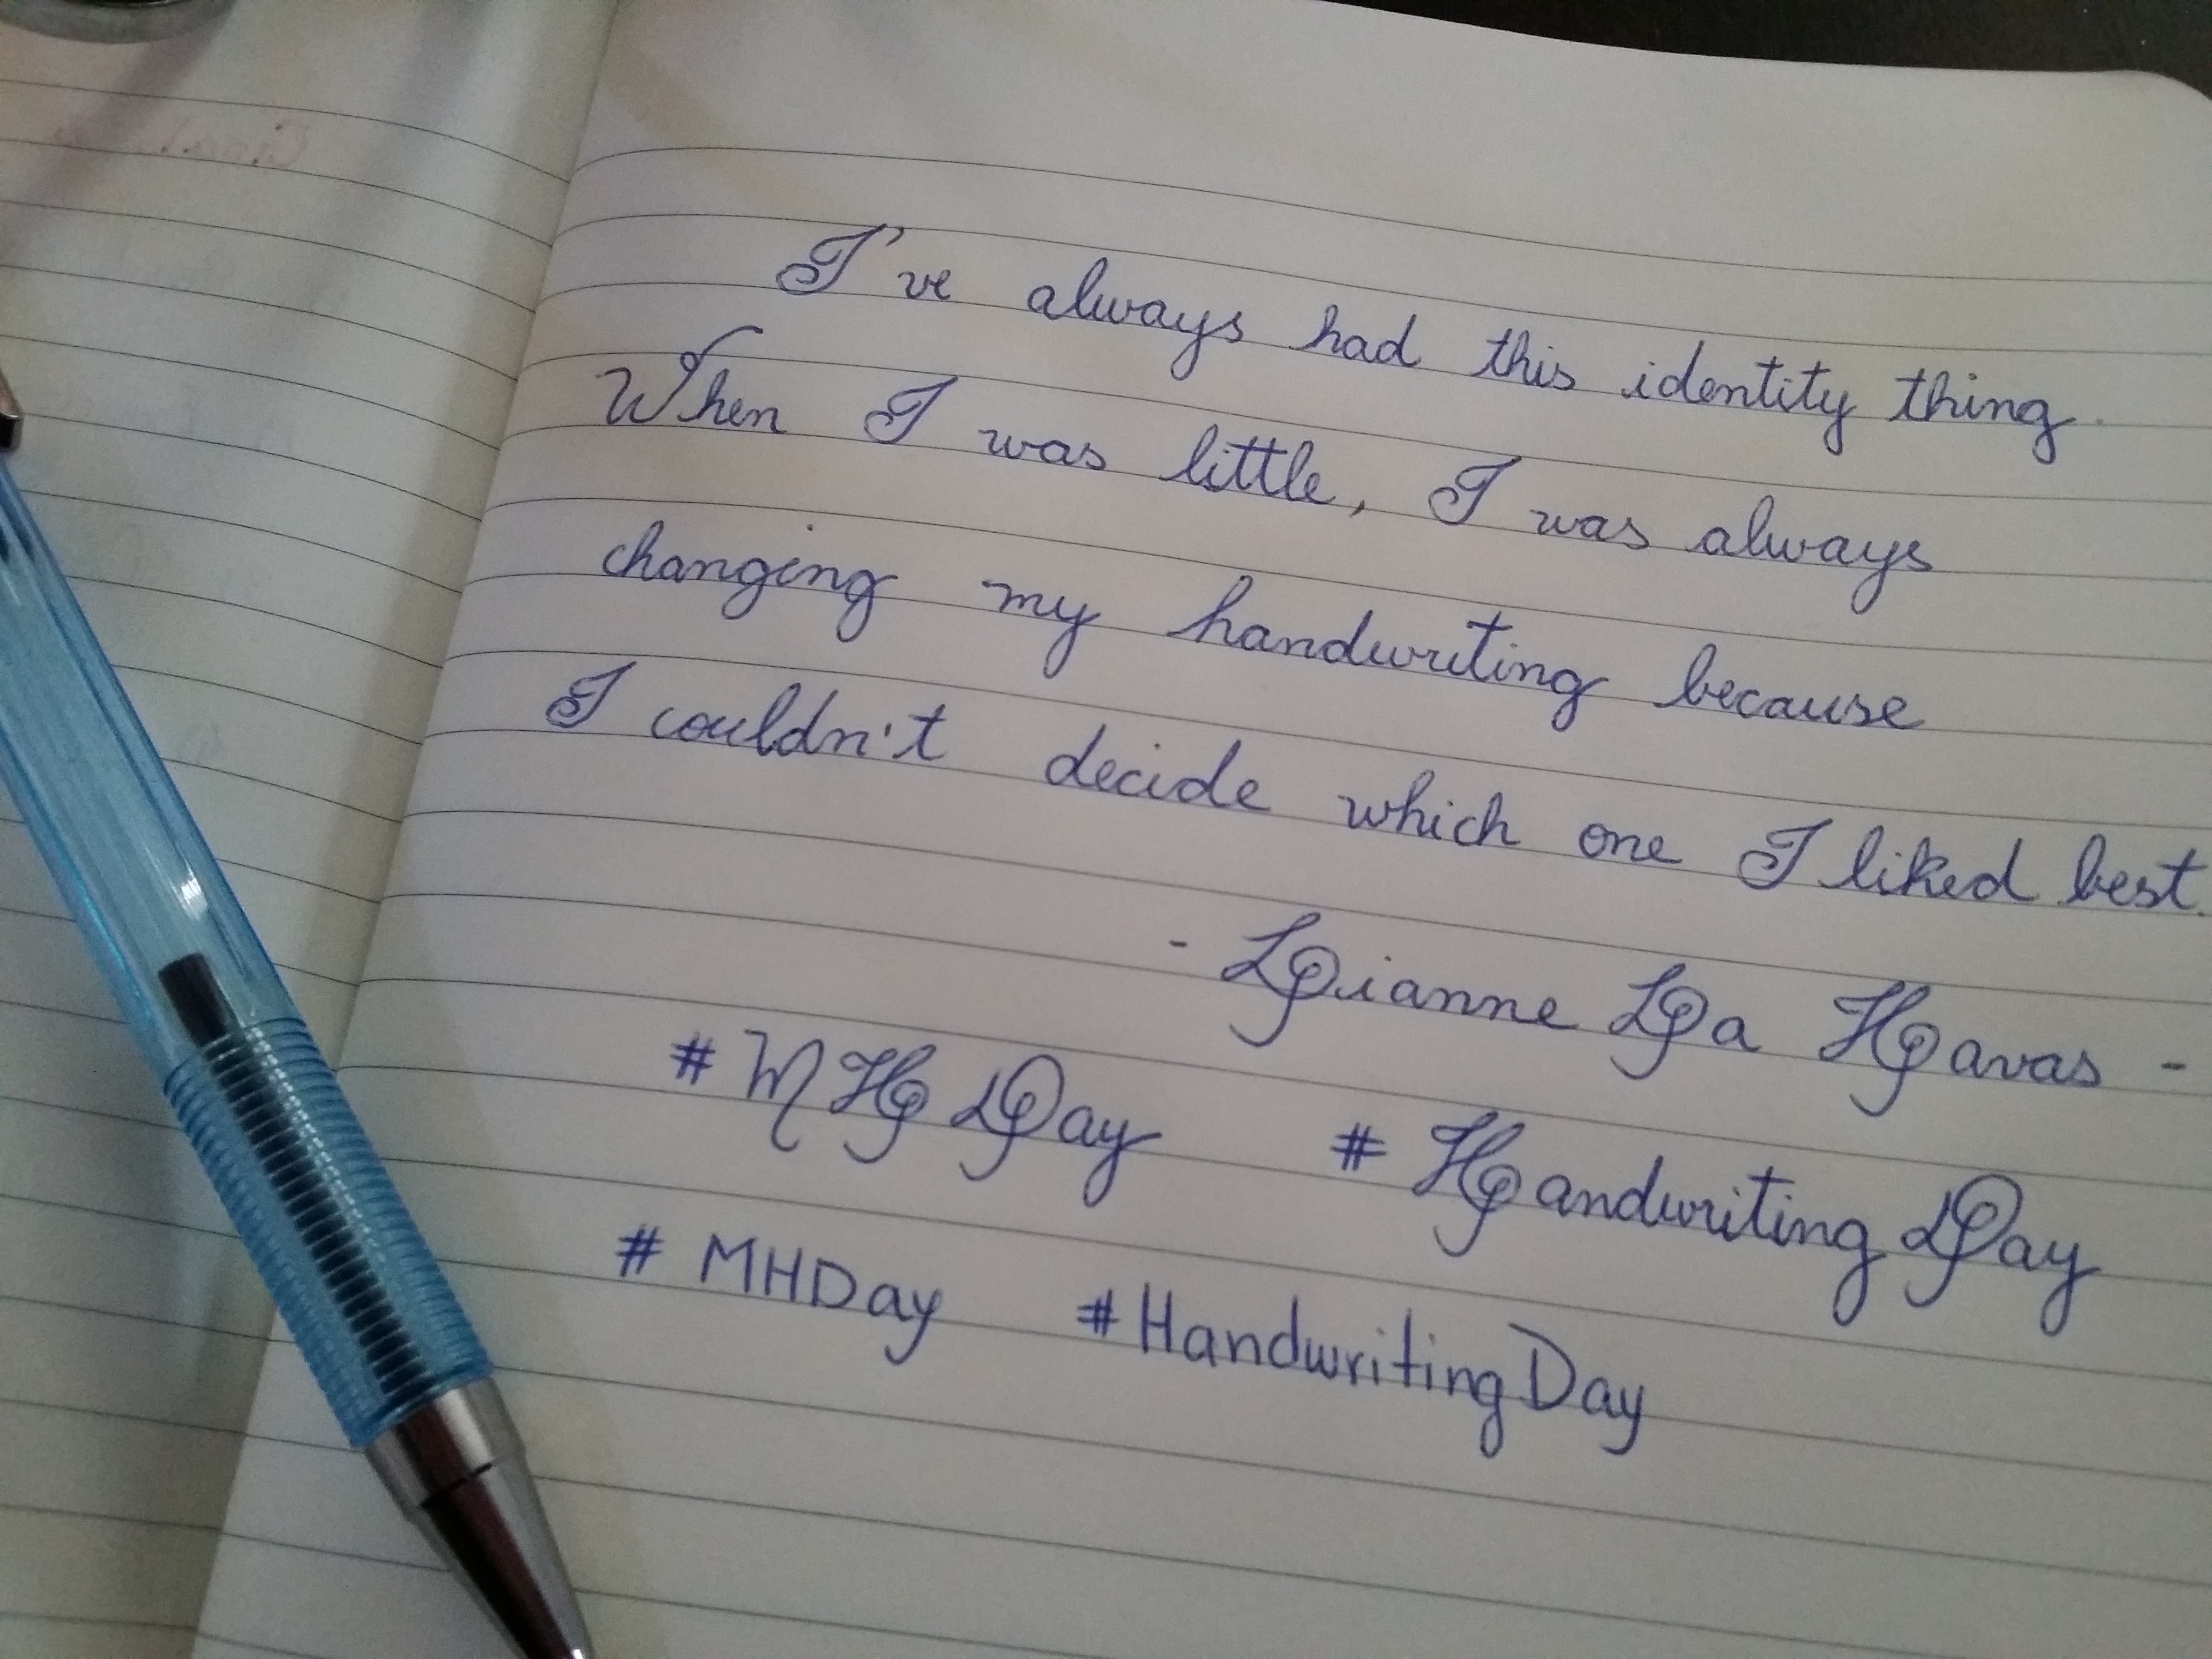 I've always had this identity thing.
When I was little, I was always
changing my handwriting because
I couldn't decide which one I liked best.
- Lianne La Havas -
# MHDay # HandwritingDay
# MHDay #HandwritingDay